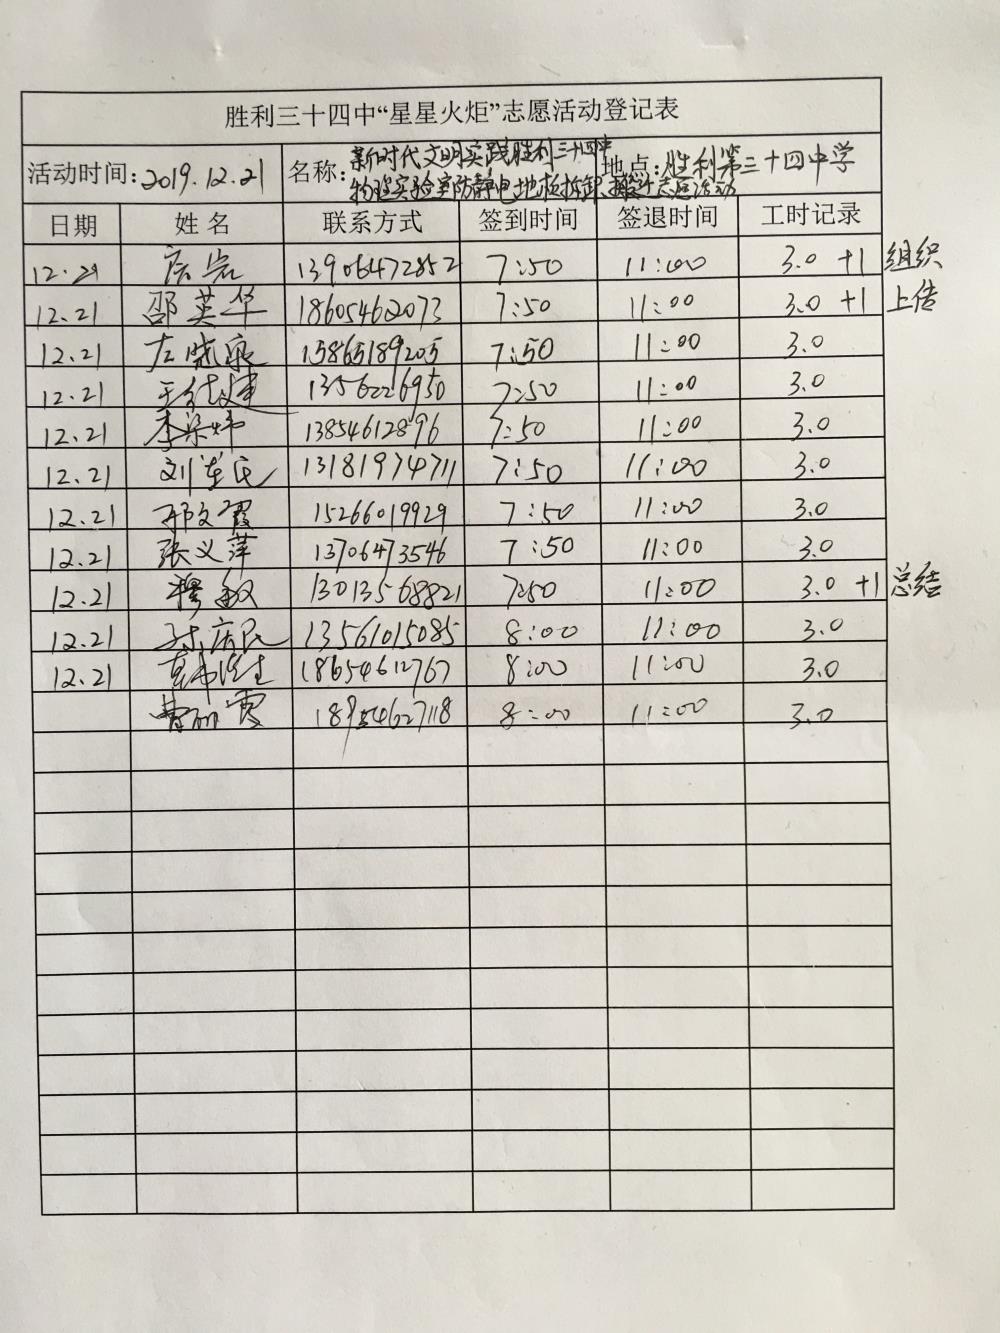 胜利三十四中“星星火炬”志愿活动登记表
活动时间:2019.12.21 名称:新时代文明实践胜利三十四中 地点:胜利第三十四中学
物理实验室防静电地板拆卸、搬迁志愿活动
日期 姓名 联系方式 签到时间 签退时间 工时记录
12.21 13906472852 7:50 11:00 3.0 +1 组织
12.21 邵英华 18605462073 7:50 11:00 3.0 +1 上传
12.21 左晓泉 15865189205 7:50 11:00 3.0
12.21 7:50 11:00 3.0
12.21 13854612896 7:50 11:00 3.0
12.21 13181974711 7:50 11:00 3.0
12.21 邢文霞 15266019929 7:50 11:00 3.0
12.21 张义萍 13706473546 7:50 11:00 3.0
12.21 穆敏 13013568821 7:50 11:00 3.0 +1 总结
12.21 13561015085 8:00 11:00 3.0
12.21 18654612767 8:00 11:00 3.0
曹丽霞 18954627118 8:00 11:00 3.0